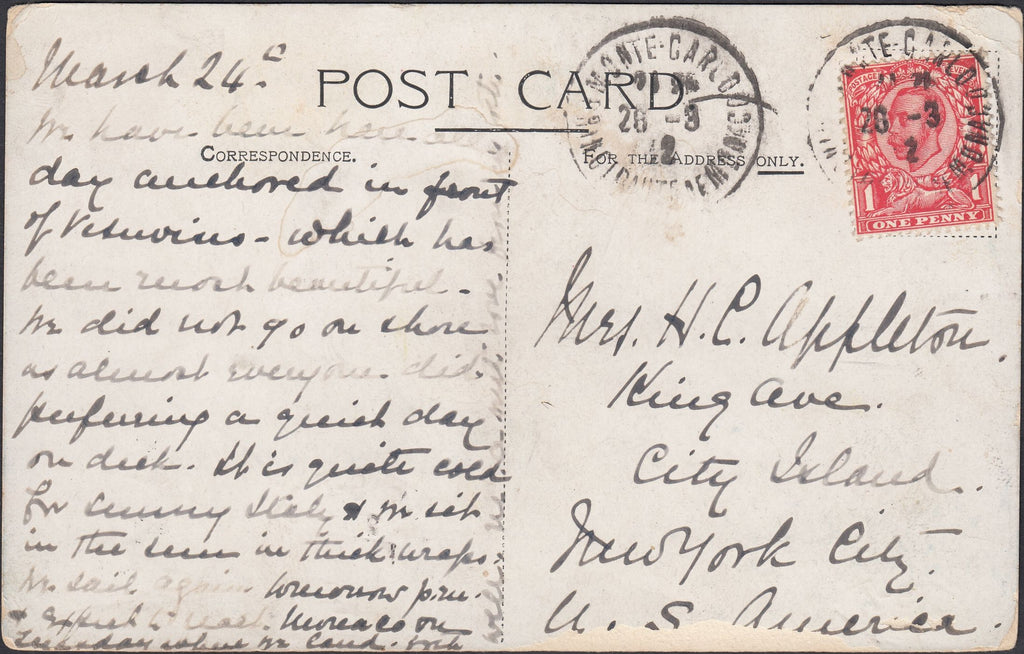 POST CARD.
CORRESPONDENCE.
FOR THE ADDRESS ONLY.
MONTE-CARLO
26 -3
2
MONTE-CARLO
26 -3
2
POSTAGE REVENUE
1 1
ONE PENNY
March 24th
We have been here all
day anchored in front
of Vesuvius - which has
been most beautiful -
We did not go on shore
as almost everyone did.
preferring a quiet day
on deck. It is quite cold
for sunny Italy & we sit
in the sun in thick wraps.
We sail again tomorrow p.m.
& expect to reach Monaco on
where we land. Both
Mrs. H. C. Appleton.
King Ave.
City Island.
New York City.
U. S. America.